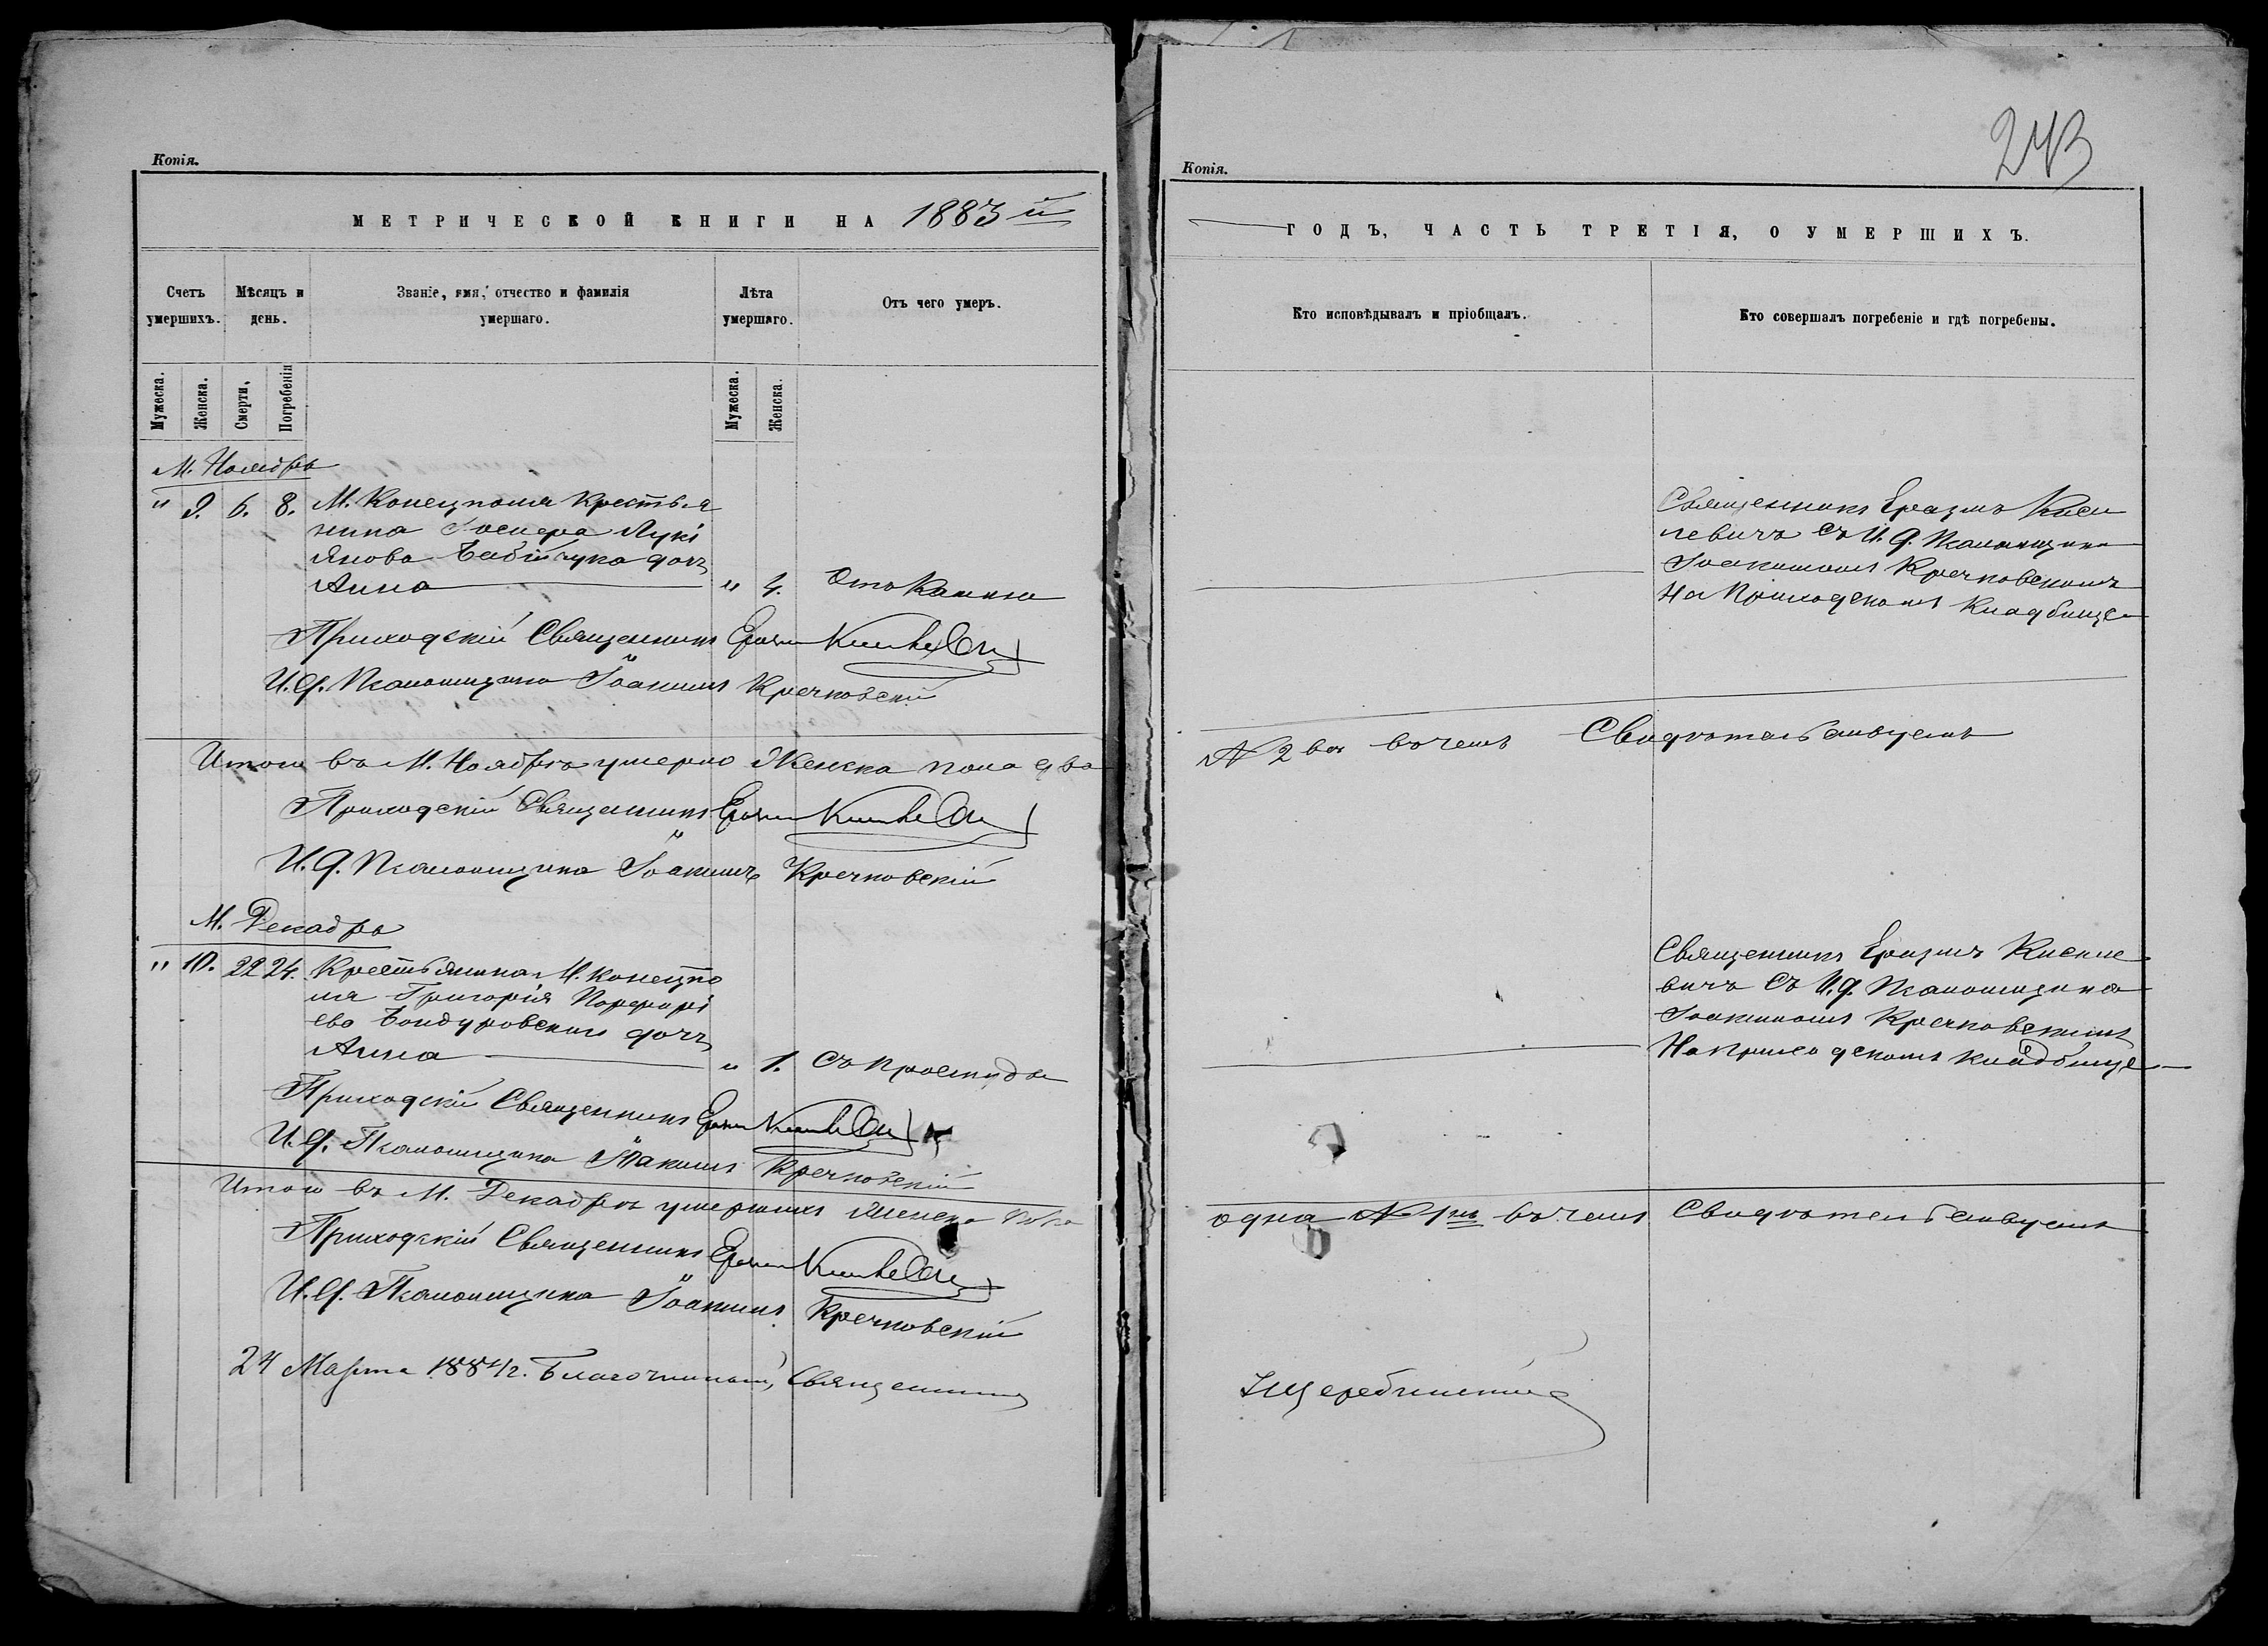 Копія.
МЕТРИЧЕСКОЙ КНИГИ НА 1883й
Счетъ умершихъ.
Мѣсяцъ и день.
Званіе, имя, отчество и фамилія умершаго.
Лѣта умершаго.
Отъ чего умеръ.
Мужеска.
Женска.
Смерти,
Погребенія
Мужеска.
Женска.
М. Ноябрь
" 9. 6. 8. М. Конецполя Крестья
нина Іосифа Лукі
янова Бабійчука дочь
Анна " 4. Отъ Кашля
Приходскій Священникъ Еразмъ
И. д. Псаломщика Іоакимъ Кречковскій
Итого въ М. Ноябрѣ умерло Женска пола два
Приходскій Священникъ Еразмъ
И. д. Псаломщика Іоакимъ Кречковскій
М. Декабрь
" 10. 22 24. Крестьянина М. Конецпо
ля Григорія Порфирі
ева Бондуровскаго дочь
Анна " 1. Съ простуды
Приходскій Священникъ Еразмъ
И. д. Псаломщика Іоакимъ Кречковскій
Итого въ М. Декабрѣ умершихъ Женска пола
Приходскій Священникъ Еразмъ
И. д. Псаломщика Іоакимъ Кречковскій
24 Марта 1884 г. Благочинный, Священникъ
243
Копія.
ГОДЪ, ЧАСТЬ ТРЕТІЯ, О УМЕРШИХЪ.
Кто исповѣдывалъ и пріобщалъ.
Кто совершалъ погребеніе и гдѣ погребены.
Священникъ Еразмъ Киси
левичъ съ И. д. Псаломщика
Іоакимомъ Кречковскимъ
На Приходскомъ Кладбище
№ 2 въ чемъ Свидѣтельствуемъ
Священникъ Еразмъ Кисиле
вичъ Съ И. д. Псаломщика
Іоакимомъ Кречковскимъ
На приходскомъ кладбище
одна № 1 въ чемъ Свидѣтельствуемъ